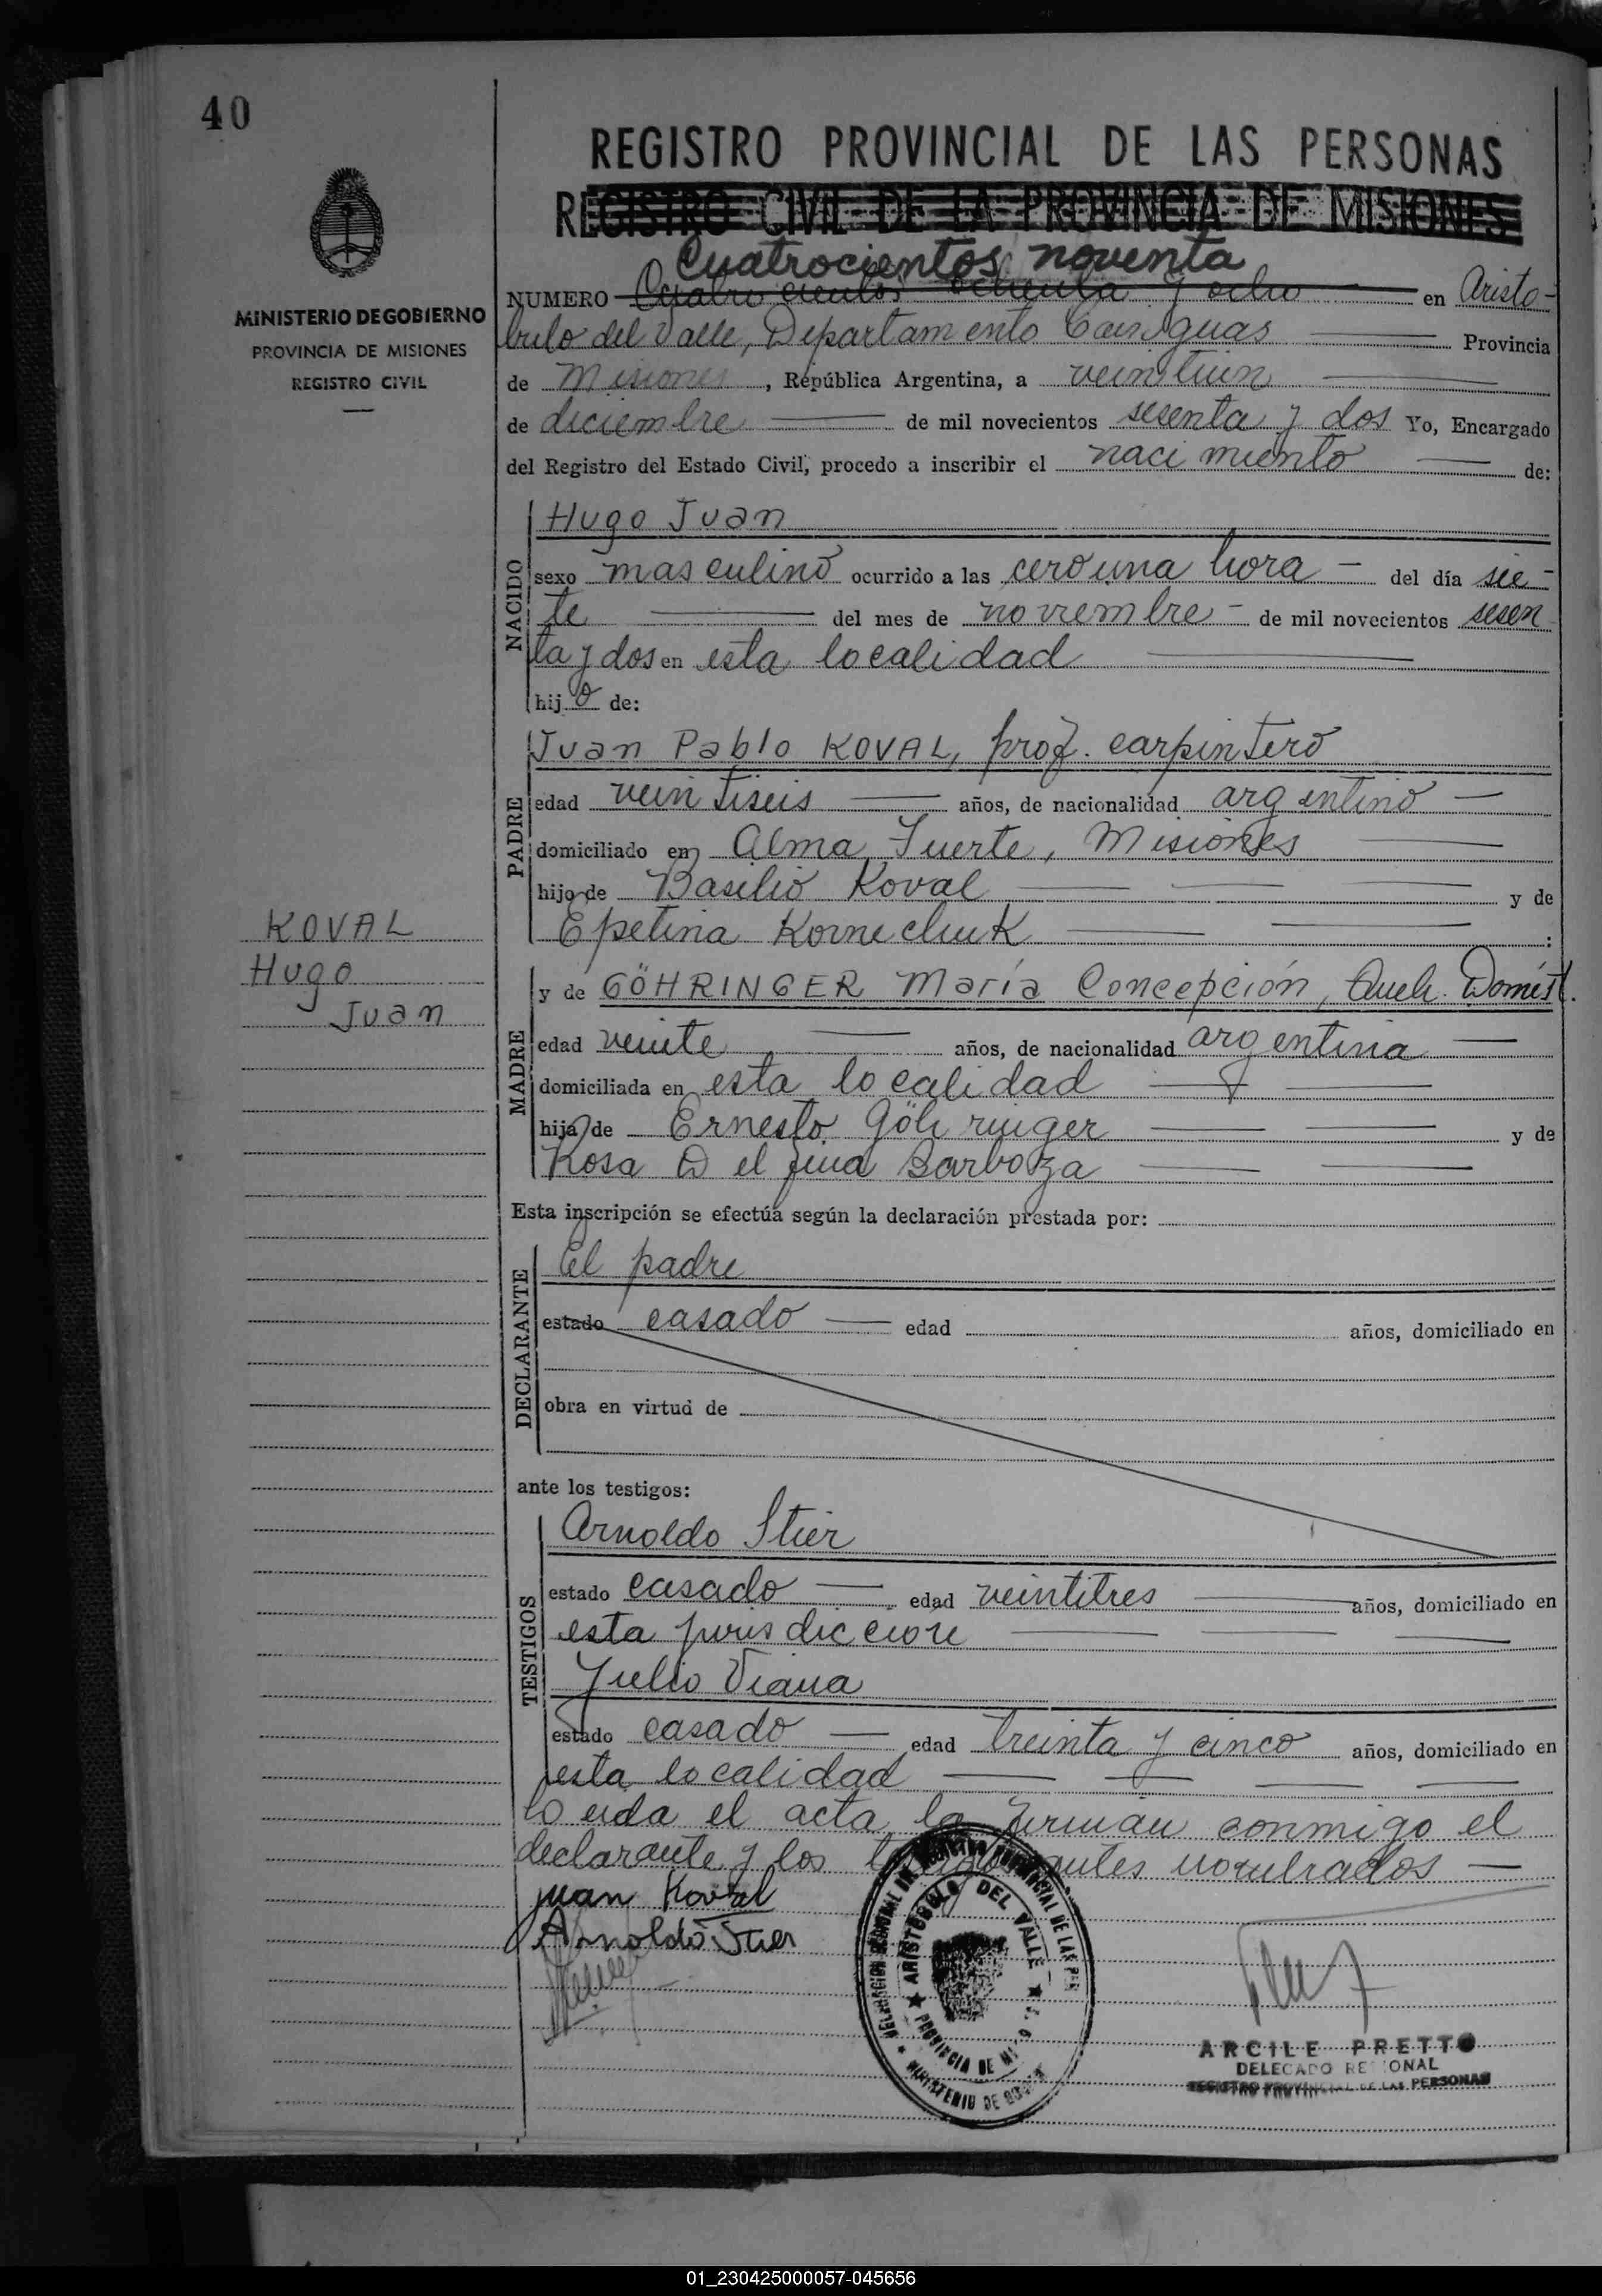 40
REGISTRO PROVINCIAL DE LAS PERSONAS
REGISTRO CIVIL DE LA PROVINCIA DE MISIONES
MINISTERIO DE GOBIERNO
PROVINCIA DE MISIONES
REGISTRO CIVIL
Cuatrocientos noventa
NUMERO Cuatro cientos ochenta y ocho en Aristo-
bulo del Valle, Departamento Cainguas Provincia
de Misiones, República Argentina, a veintiun
de diciembre de mil novecientos sesenta y dos Yo, Encargado
del Registro del Estado Civil, procedo a inscribir el nacimiento de:
NACIDO
Hugo Juan
sexo masculino ocurrido a las cero una hora - del día sie-
te del mes de noviembre - de mil novecientos sesen
ta y dos en esta localidad
hijo de:
PADRE
Juan Pablo KOVAL, prof. carpintero
edad veintiseis años, de nacionalidad argentino
domiciliado en Alma Fuerte, Misiones
hijo de Basilio Koval y de
Epetina Kornechuk :
KOVAL
Hugo
Juan
MADRE
y de GÖHRINGER María Concepción, Queh. Domést.
edad veinte años, de nacionalidad argentina
domiciliada en esta localidad
hija de Ernesto Göhringer y de
Rosa Delfina Barboza
Esta inscripción se efectúa según la declaración prestada por:
DECLARANTE
El padre
estado casado edad años, domiciliado en
obra en virtud de
ante los testigos:
TESTIGOS
Arnoldo Stier
estado casado edad veintitres años, domiciliado en
esta jurisdiccion
Julio Viana
estado casado edad treinta y cinco años, domiciliado en
esta localidad
Leida el acta la firman conmigo el
declarante y los testigos antes nombrados
Juan Koval
Arnoldo Stier
ARISTOBULO DEL VALLE
PROVINCIA DE MI
MINISTERIO DE
ARCILE PRETTO
DELEGADO REGIONAL
REGISTRO PROVINCIAL DE LAS PERSONAS
01_230425000057-045656